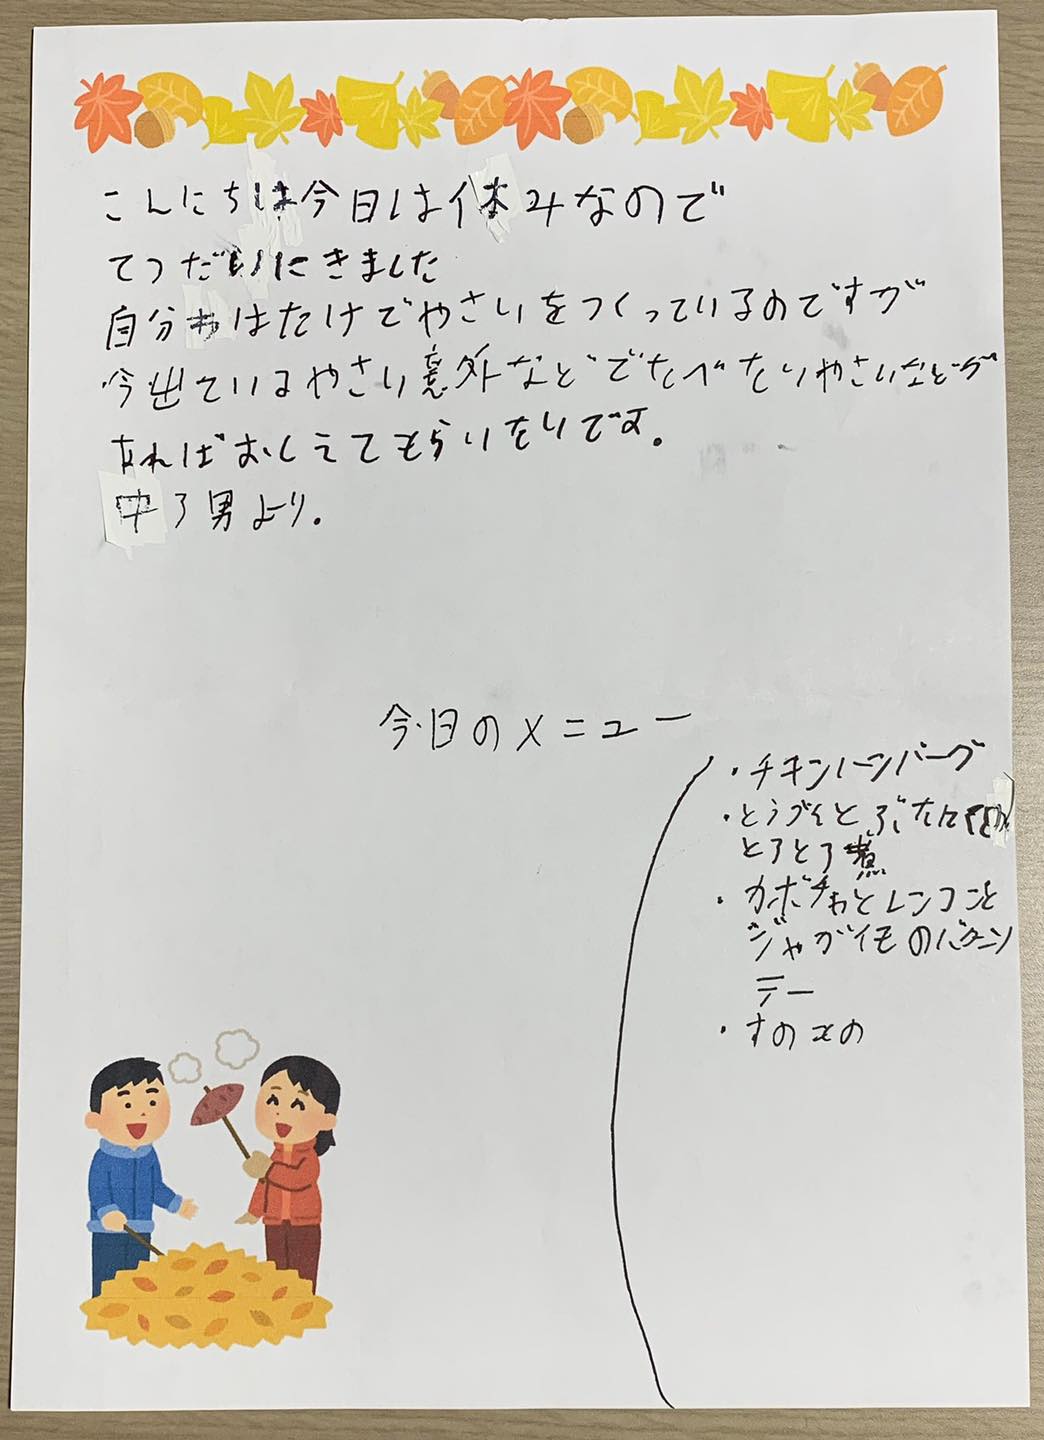 こんにちは今日は休みなので
てつだいにきました
自分もはたけでやさいをつくっているのですが
今出ているやさい意外などでたべたいやさいなどが
あればおしえてもらいたいです。
中3男より。
今日のメニュー
・チキンハンバーグ
・とうがんとぶたにくの
とろとろ煮
・カボチャとレンコンと
ジャガイモのバターソ
テー
・すのもの